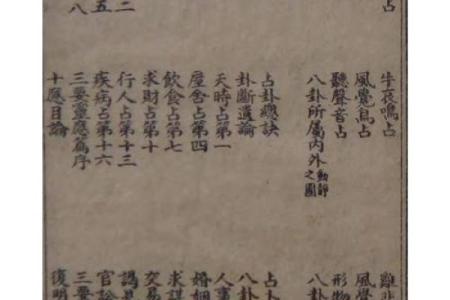 占 牛哀鳴占 雞
風覺鳥占 風覺
聽聲音占 形物
八卦所屬內外動靜之圖 八卦
占卦總訣 占卜
卦斷遺論 八卦
天時占第一 人事
屋舍占第四 婚姻
飲食占第七 求謀
求財占第十 交易
二 行人占第十三 謁
五 疾病占第十六 官訟
八 三要靈應篇序 三要
十應目論 復明